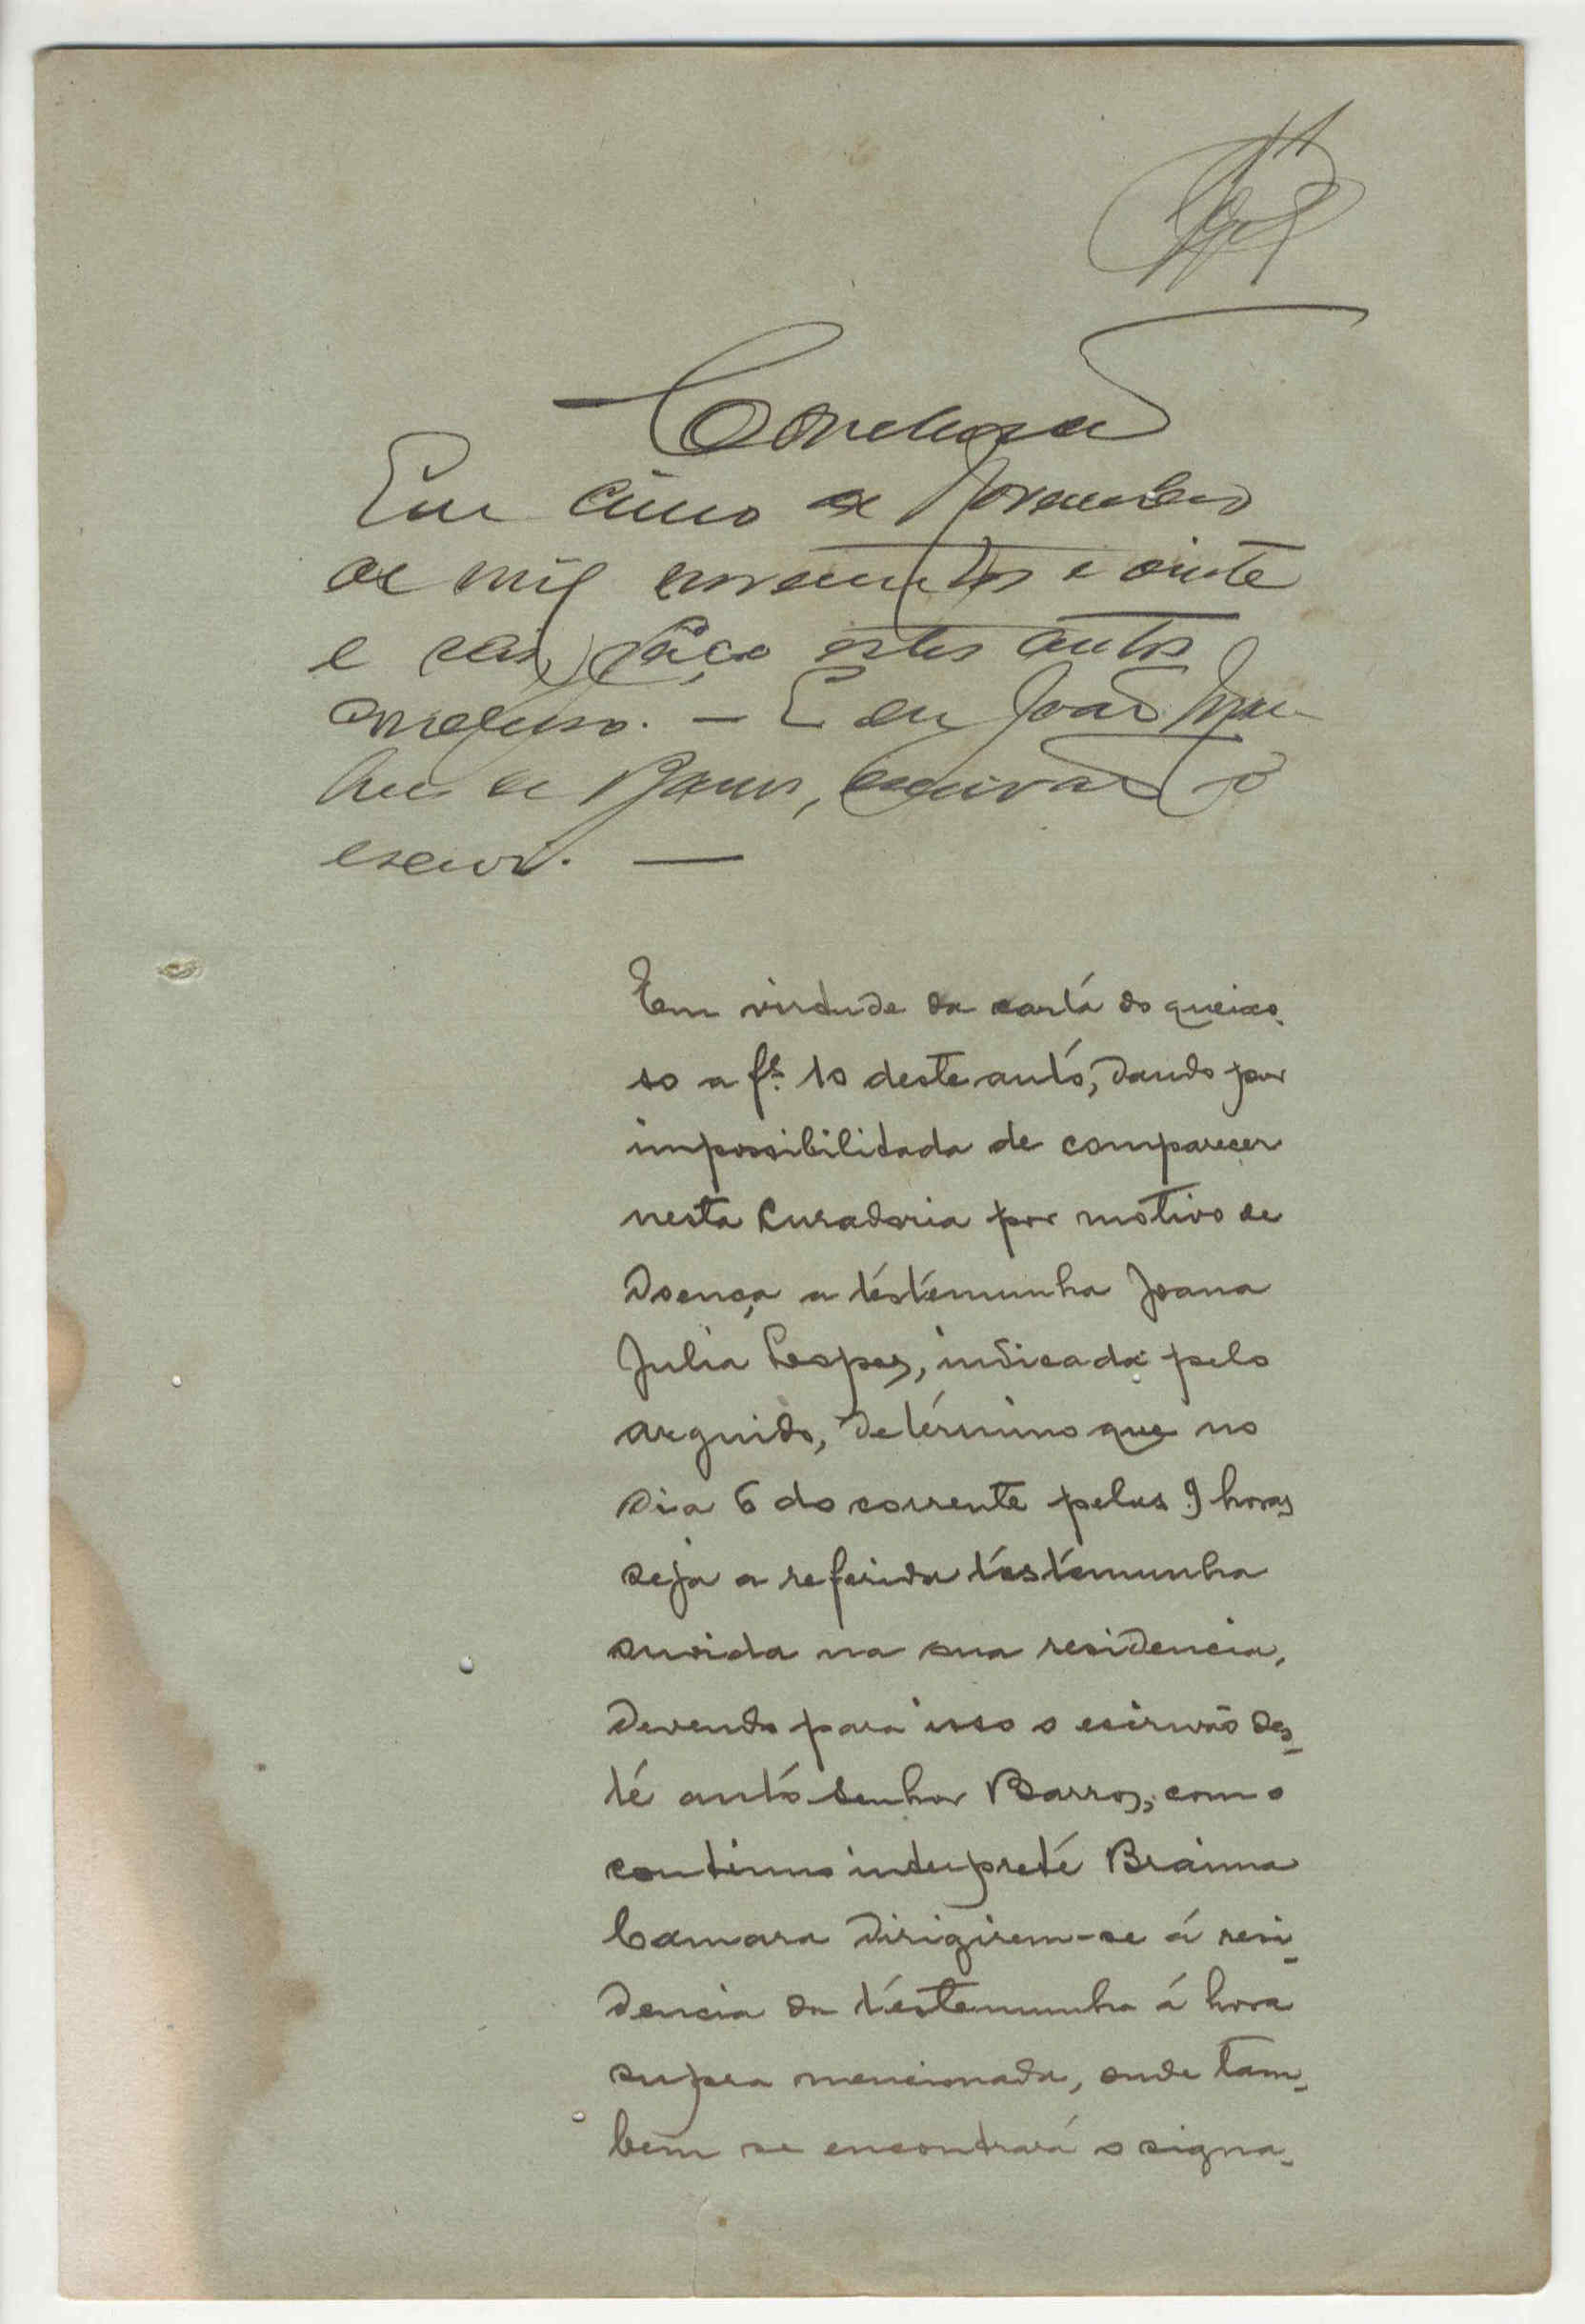 Conclusão
Em cinco de Novembro
de mil novecentos e vinte
e seis, faço estes autos
concluso. — E eu João
de Barros, escrivão o
escrevi. —
Em virtude da carta do queixo-
so a fs. 10 deste auto, dando por
impossibilitada de comparecer
nesta Curadoria por motivo de
doença a testemunha Joana
Julia Lopes, indicada pelo
arguido, determino que no
dia 6 do corrente pelas 9 horas
seja a referida testemunha
ouvida na sua residencia,
devendo para isso o escrivão des-
te auto senhor Barros, com o
continuo interprete
Camara dirigirem-se á resi-
dencia da testemunha á hora
supra mencionada, onde tam-
bem se encontrará o signa-